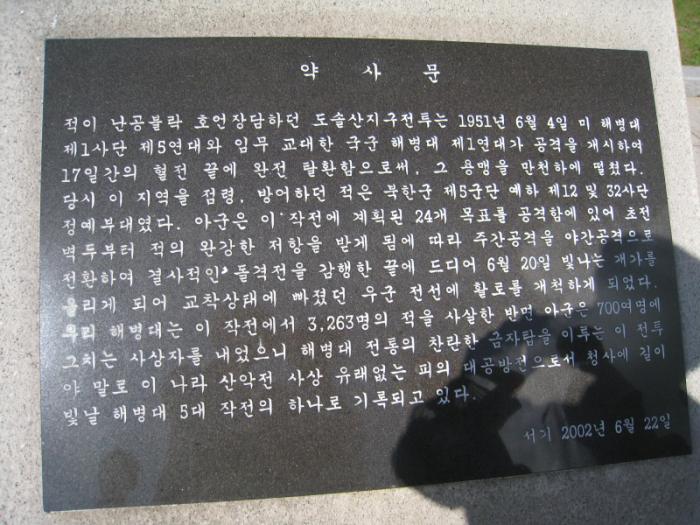 약 사 문
적이 난공블락 호언장담하던 도솔산지구전투는 1951년 6월 4일 미 해병대
제1사단 제5연대와 임무 교대한 국군 해병대 제1연대가 공격을 개시하여
17일간의 혈전 끝에 완전 탈환함으로써, 그 용맹을 만천하에 떨쳤다.
당시 이 지역을 점령, 방어하던 적은 북한군 제5군단 예하 제12 및 32사단
정예부대였다. 아군은 이 작전에 계획된 24개 목표를 공격함에 있어 초전
벽두부터 적의 완강한 저항을 받게 됨에 따라 주간공격을 야간공격으로
전환하여 결사적인 돌격전을 감행한 끝에 드디어 6월 20일 빛나는 개가를
올리게 되어 교착상태에 빠졌던 우군 전선에 활로를 개척하게 되었다.
우리 해병대는 이 작전에서 3,263명의 적을 사살한 반면 아군은 700여명에
그치는 사상자를 내었으니 해병대 전통의 찬란한 금자탑을 이루는 이 전투
야 말로 이 나라 산악전 사상 유래없는 피의 대공방전으로서 청사에 길이
빛날 해병대 5대 작전의 하나로 기록되고 있다.
서기 2002년 6월 22일